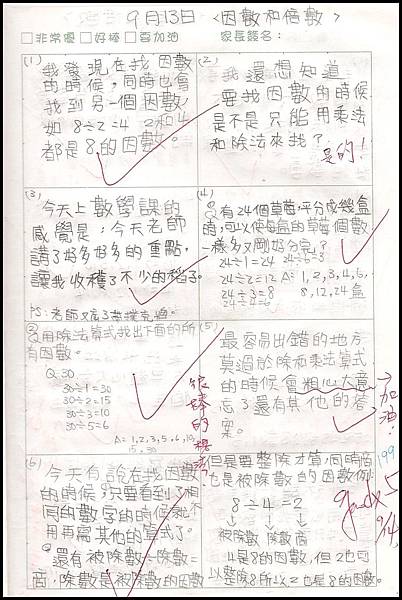 9月13日 <因數和倍數>
□非常優 □好棒 □要加油 家長簽名：
(1)
我發現在找因數
的時候，同時也會
找到另一個因數，
如 8÷2=4 2和4
都是8的因數。
(2)
我還想知道
要找因數的時候
是不是只能用乘法
和除法來找？
是的！
(3)
今天上數學課的
感覺是：今天老師
講了好多好多的重點，
讓我收穫了不少的稻子。
(4)
Q有24個草莓，平分成幾盒
時，可以使每盒的草莓個數
一樣多又剛好分完？
24÷1=24 24÷6=3
24÷2=12 A=1,2,3,4,6,
24÷3=8 8,12,24盒
Q用除法算式找出下面的所
有因數。
Q 30
30÷1=30
30÷2=15
30÷3=10
30÷5=6
A=1,2,3,5,6,10,
15,30
很棒的思考
(5)
最容易出錯的地方
莫過於除或乘法算式
的時候會粗心大意
忘了還有其他的答
案。
加油！
(6)
今天有說在找因數
的時候，只要看到了相
同的數字的時候就不
用再寫其他的算式了。
還有被除數÷除數=
商，除數是被除數的因數
但是要整除才算，同時商
也是被除數的因數例：
8÷4=2
↓ ↓ ↓
被除數 除數 商
4是8的因數，但2也可
以整除8所以2也是8的因數。
199
good×5
9/14